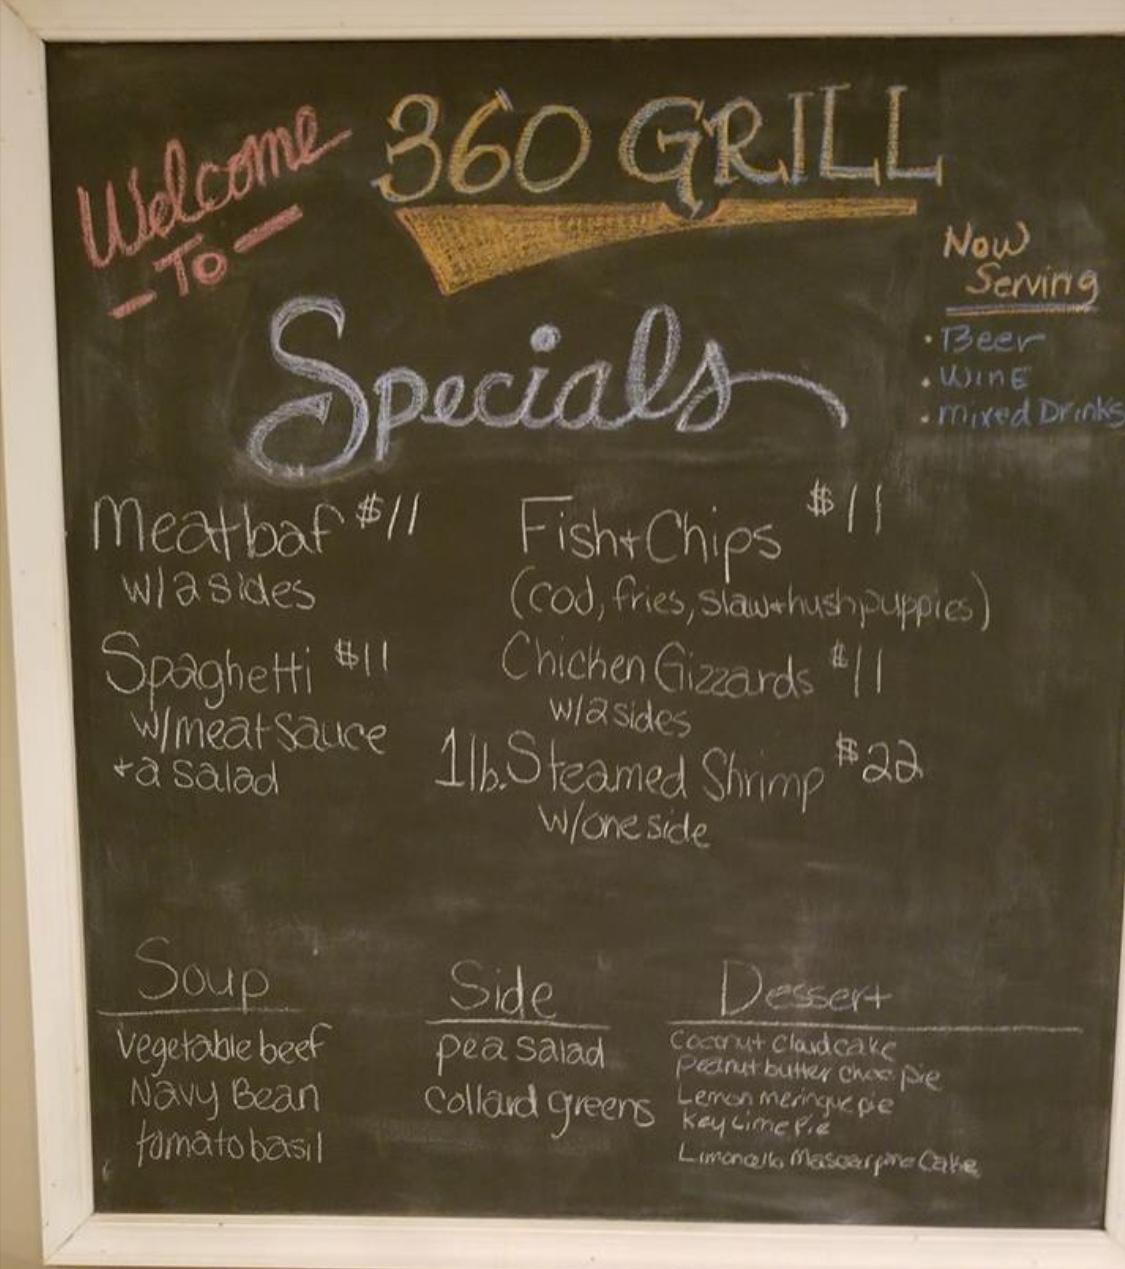 Welcome
To
360 GRILL
Now
Serving
• Beer
• WINE
• mixed Drinks
Specials
Meatloaf $11
w/2 sides
Spaghetti $11
w/meat sauce
+ a salad
Fish + Chips $11
(cod, fries, slaw + hushpuppies)
Chicken Gizzards $11
w/2 sides
1 lb. Steamed Shrimp $22
w/one side
Soup
vegetable beef
Navy Bean
tomato basil
Side
pea salad
collard greens
Dessert
Coconut Cloud cake
Peanut butter choc pie
Lemon meringue pie
Key Lime Pie
Limoncello Mascarpone Cake